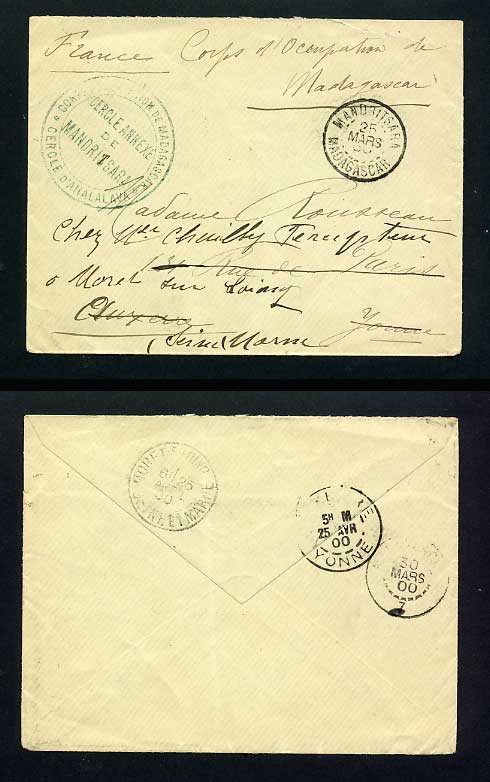 France Corps d'Occupation de
Madagascar
MANDRITSARA
25
MARS
00
MADAGASCAR
CORPS D'OCCUPATION DE MADAGASCAR
CERCLE ANNEXE
DE
MANDRITSARA
CERCLE D'ANALALAVA
Madame Rousseau
Chez Mr
Rue de Paris
à Moret sur Loing
Yonne
Seine Marne
MORET-S-LOING
25
SEINE ET MARNE
5H M
25 AVR
00
YONNE
30
MARS
00